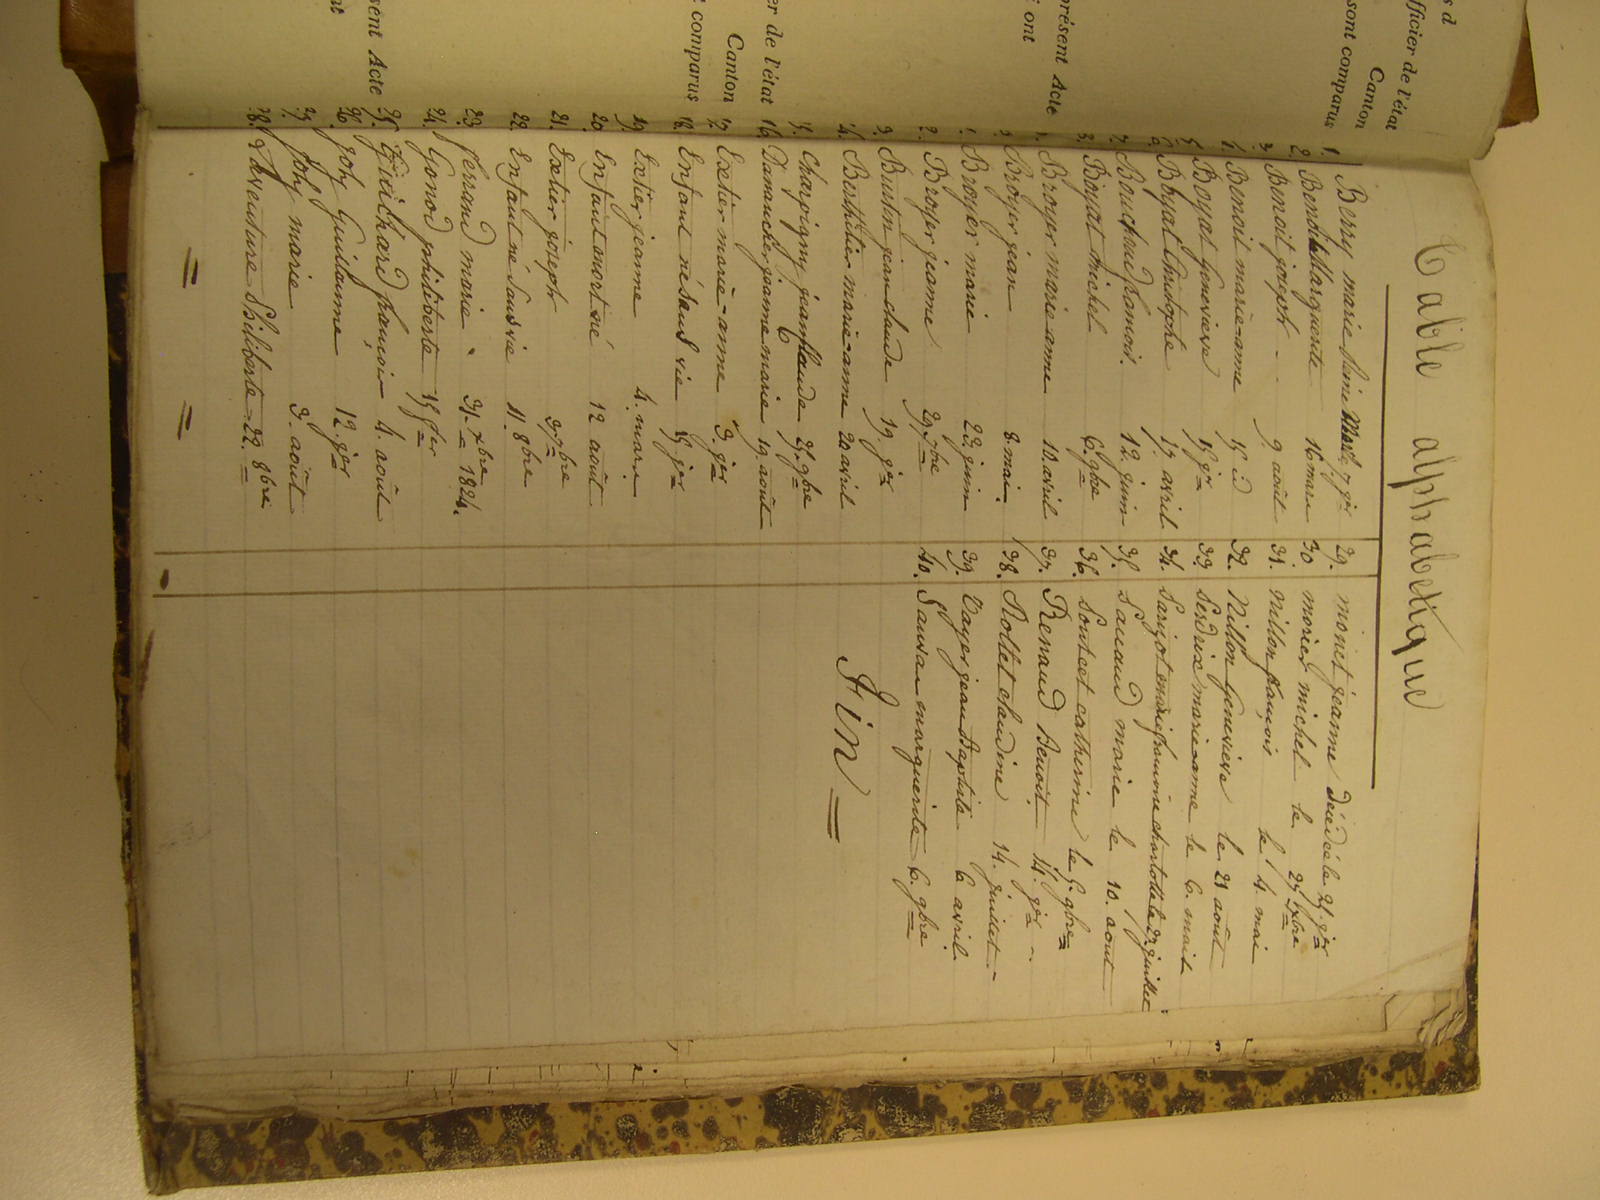 officier de l'état
Canton
sont comparus
présent Acte
ont
er de l'état
Canton
comparus
sent Acte
Table alphabetique
1. Berry marie
2. Benoit Marguerite 16 mars
3. Benoit joseph 9 août
4. Benoit marie-anne 15 id
5. Boyat Genevieve 15 9bre
6. Boyat Christophe 17 avril
7. Bouchoud francois 12 juin
8. Boyat michel 6. 9bre
Broyer marie anne 10 avril
Broyer jean 8 mai
Broyer marie 22 juin
Broyer jeanne
Burtin jean claude 19.
14. Berthelier marie-anne 20 avril
15. Charpigny jean Claude 25. 9bre
16. Damancher jeanne marie 19. août
17. Exetier marie-anne 3.
18. Enfant né sans vie 15
19. Exetier jeanne 4. mars
20. Enfant mort né 12 août
21. Exetier joseph
22. Enfant né sans vie 11. 8bre
23. ferrand marie 31. Xbre 1824.
24. Gonod philiberte 15
25. Guichard françois 4. août
26. Joly Guillaume 12
27. Joly marie 3. août
28. Laventure Philiberte 22. 8bre
29. monet jeanne décédée le 21.
30. morier michel le 25 Xbre
31. Nillon françois le 4. mai
32. Nillon Genevieve le 21 août
33. Perdrix marie-anne le 6. mai
34. charlotte le juillet
35. marie le 10. aout
36. catherine le 5. 9bre
37. Renaud Benoit 14.
38. Rollet claudine 14. juillet
39. Vayer jean Baptiste 6 avril
40. Sauvan marguerite 6. 9bre
Fin